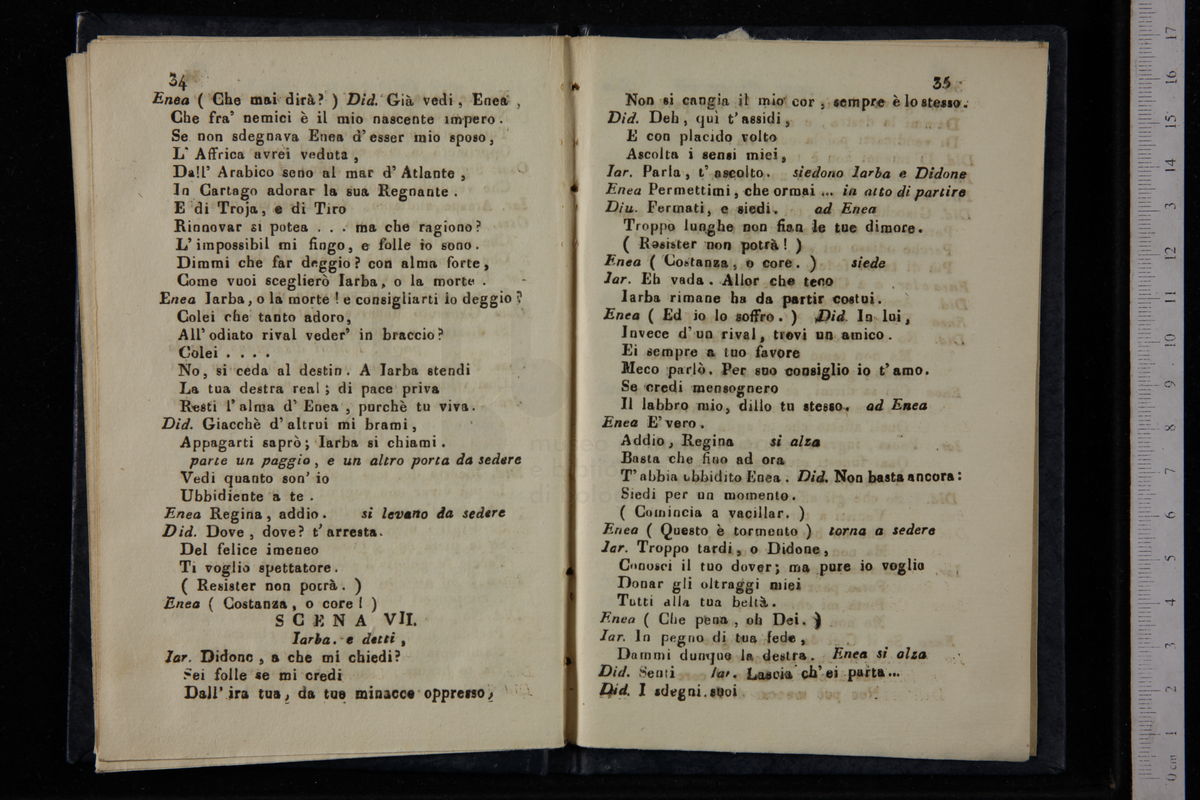 34
Enea ( Che mai dirà? ) Did. Già vedi, Enea,
Che fra' nemici è il mio nascente impero.
Se non sdegnava Enea d'esser mio sposo,
L' Affrica avrei veduta,
Dall' Arabico seno al mar d' Atlante,
In Cartago adorar la sua Regnante.
E di Troja, e di Tiro
Rinnovar si potea . . . ma che ragiono?
L' impossibil mi fingo, e folle io sono.
Dimmi che far deggio? con alma forte,
Come vuoi sceglierò Iarba, o la morte.
Enea Iarba, o la morte! e consigliarti io deggio?
Colei che tanto adoro,
All' odiato rival veder' in braccio?
Colei . . . .
No, si ceda al destin. A Iarba stendi
La tua destra real; di pace priva
Resti l'alma d' Enea, purchè tu viva.
Did. Giacchè d'altrui mi brami,
Appagarti saprò; Iarba si chiami.
parte un paggio, e un altro porta da sedere
Vedi quanto son' io
Ubbidiente a te.
Enea Regina, addio. si levano da sedere
Did. Dove, dove? t' arresta.
Del felice imeneo
Ti voglio spettatore.
( Resister non potrà. )
Enea ( Costanza, o core! )
SCENA VII.
Iarba. e detti,
Iar. Didone, a che mi chiedi?
Sei folle se mi credi
Dall' ira tua, da tue minacce oppresso,
35
Non si cangia il mio cor, sempre è lo stesso.
Did. Deh, quì t'assidi,
E con placido volto
Ascolta i sensi miei,
Iar. Parla, t' ascolto. siedono Iarba e Didone
Enea Permettimi, che ormai ... in atto di partire
Diu. Fermati, e siedi. ad Enea
Troppo lunghe non fian le tue dimore.
( Resister non potrà! )
Enea ( Costanza, o core. ) siede
Iar. Eh vada. Allor che teco
Iarba rimane ha da partir costui.
Enea ( Ed io lo soffro. ) Did. In lui,
Invece d'un rival, trovi un amico.
Ei sempre a tuo favore
Meco parlò. Per suo consiglio io t'amo.
Se credi mensognero
Il labbro mio, dillo tu stesso. ad Enea
Enea E' vero.
Addio, Regina si alza
Basta che fino ad ora
T' abbia ubbidito Enea. Did. Non basta ancora:
Siedi per un momento.
( Comincia a vacillar. )
Enea ( Questo è tormento ) torna a sedere
Iar. Troppo tardi, o Didone,
Conosci il tuo dover; ma pure io voglio
Donar gli oltraggi miei
Tutti alla tua beltà.
Enea ( Che pena, oh Dei. )
Iar. In pegno di tua fede,
Dammi dunque la destra. Enea si alza
Did. Senti Iar. Lascia ch' ei parta...
Did. I sdegni suoi